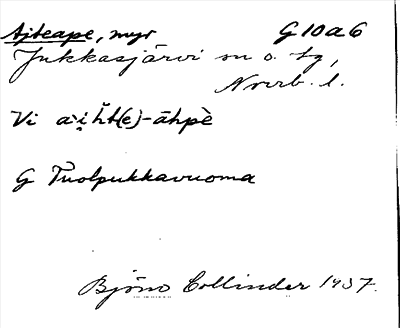 Ajteape, myr G 10 a 6
Jukkasjärvi sn o. tg,
Norrb. l.
Vi a'i̯h̆t(e)-āhpè
G Tuolpukkavuoma
Björn Collinder 1937.